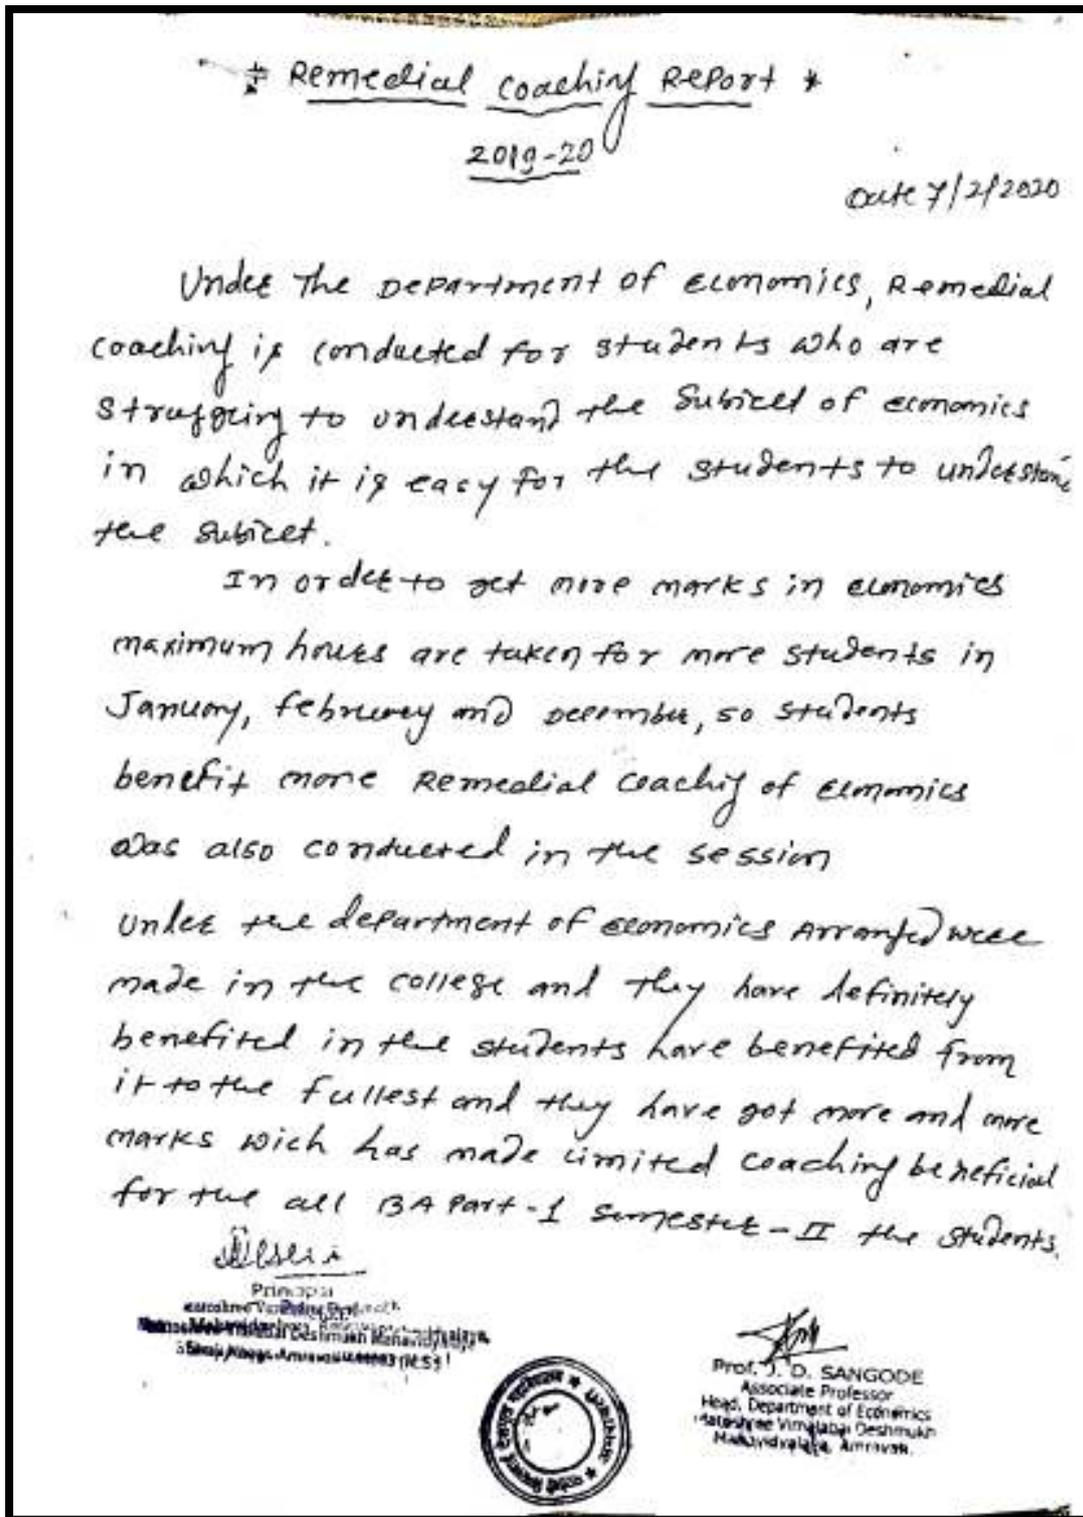 * Remedial Coaching Report *
2019-20
Date 7/2/2020
Under The Department of Economics, Remedial
coaching is conducted for students who are
to understand the Subject of economics
in which it is easy for the students to understand
the Subject.
In order to get more marks in economics
maximum hours are taken for more students in
January, february and December, so students
benefit more Remedial Coachig of Economics
was also conducted in the session
Under the department of Economics Arranged were
made in the college and they have definitely
benefited in the students have benefited from
it to the fullest and they have got more and more
marks wich has made Limited Coaching beneficial
for the all BA Part-1 Semester-II the students.
Principal
Deshmukh Mahavidyalaya
Amravati
Prof. J. D. SANGODE
Associate Professor
Head, Department of Economics
Matoshree Vimalabai Deshmukh
Mahavidyalaya, Amravati.